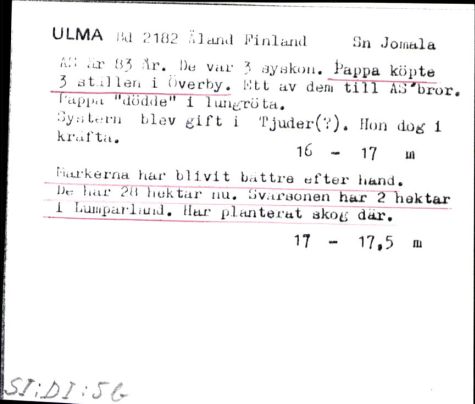 ULMA Bd 2182 Åland Finland Sn Jomala
AS är 83 år. De var 3 syskon. Pappa köpte
3 ställen i Överby. Ett av dem till AS'bror.
Pappa "dödde" i lungröta.
Systern blev gift i Tjuder(?). Hon dog i
kräfta.
16 - 17 m
Markerna har blivit bättre efter hand.
De har 28 hektar nu. Svärsonen har 2 hektar
i Lumparland. Har planterat skog där.
17 - 17,5 m
SI:DI:5G